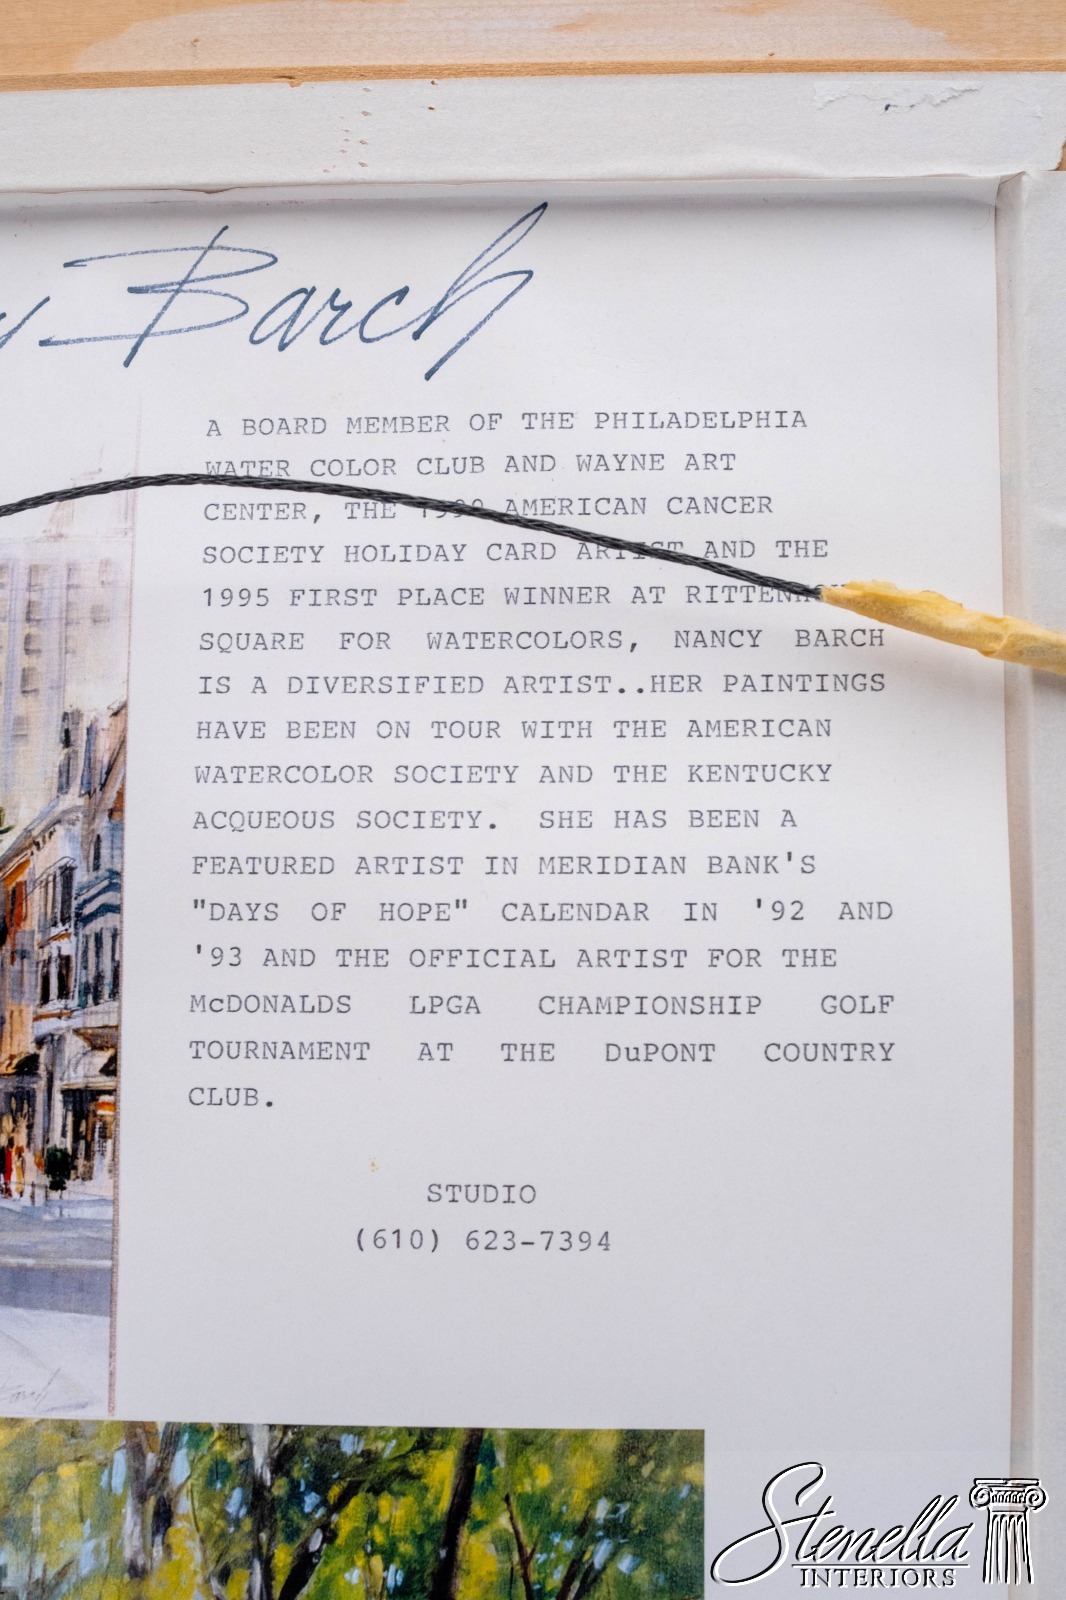 Barch
A BOARD MEMBER OF THE PHILADELPHIA
WATER COLOR CLUB AND WAYNE ART
CENTER, THE AMERICAN CANCER
SOCIETY HOLIDAY CARD ARTIST AND THE
1995 FIRST PLACE WINNER AT
SQUARE FOR WATERCOLORS, NANCY BARCH
IS A DIVERSIFIED ARTIST..HER PAINTINGS
HAVE BEEN ON TOUR WITH THE AMERICAN
WATERCOLOR SOCIETY AND THE KENTUCKY
ACQUEOUS SOCIETY. SHE HAS BEEN A
FEATURED ARTIST IN MERIDIAN BANK'S
"DAYS OF HOPE" CALENDAR IN '92 AND
'93 AND THE OFFICIAL ARTIST FOR THE
McDONALDS LPGA CHAMPIONSHIP GOLF
TOURNAMENT AT THE DuPONT COUNTRY
CLUB.
STUDIO
(610) 623-7394
Stenella
INTERIORS